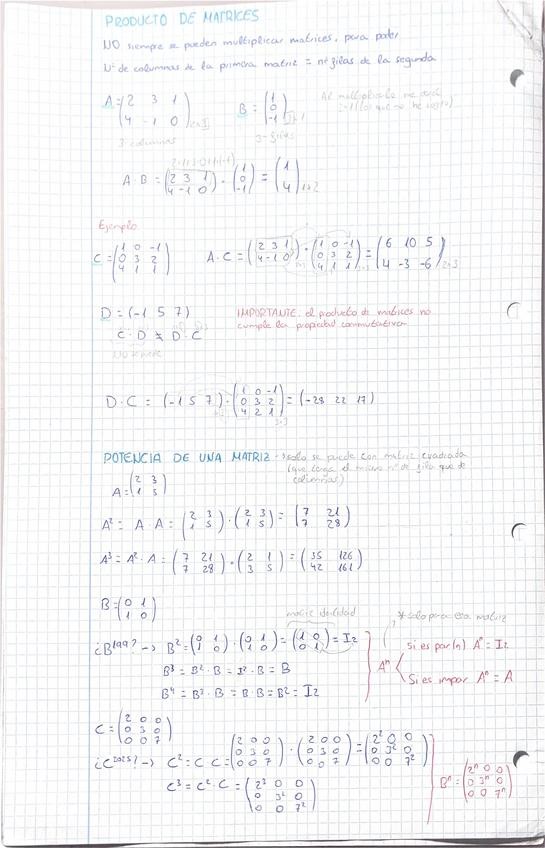 PRODUCTO DE MATRICES
NO siempre se pueden multiplicar matrices, para poder
Nº de columnas de la primera matriz = nº filas de la segunda
A = (2 3 1 / 4 -1 0) 2x3
B = (1 / 0 / -1) 3x1
Al multiplicarlo me dará
3 columnas
3-filas
A · B = (2 3 1 / 4 -1 0) · (1 / 0 / -1) = (1 / 4)
Ejemplo
C = (1 0 -1 / 0 3 2 / 4 1 1)
A · C = (2 3 1 / 4 -1 0) · (1 0 -1 / 0 3 2 / 4 1 1) = (6 10 5 / 4 -3 -6) 2x3
D = (-1 5 7)
C · D ≠ D · C
NO se puede
IMPORTANTE. el producto de matrices no
cumple la propiedad conmutativa
D · C = (-1 5 7) · (1 0 -1 / 0 3 2 / 4 2 1) = (-28 22 17)
POTENCIA DE UNA MATRIZ → solo se puede con matriz cuadrada
(que tenga el mismo nº de fila que de
columnas)
A = (2 3 / 1 5)
A² = A · A = (2 3 / 1 5) · (2 3 / 1 5) = (7 21 / 7 28)
A³ = A² · A = (7 21 / 7 28) · (2 1 / 3 5) = (35 126 / 42 161)
B = (0 1 / 1 0)
matriz identidad
* solo para esa matriz
¿B¹⁹⁹? → B² = (0 1 / 1 0) · (0 1 / 1 0) = (1 0 / 0 1) = I2
B³ = B² · B = I² · B = B
B⁴ = B³ · B = B · B = B² = I2
Aⁿ
Si es par(n) Aⁿ = I2
Si es impar Aⁿ = A
C = (2 0 0 / 0 3 0 / 0 0 7)
¿C²⁰²⁵? → C² = C · C = (2 0 0 / 0 3 0 / 0 0 7) · (2 0 0 / 0 3 0 / 0 0 7) = (2² 0 0 / 0 3² 0 / 0 0 7²)
C³ = C² · C = (2³ 0 0 / 0 3² 0 / 0 0 7²)
Bⁿ = (2ⁿ 0 0 / 0 3ⁿ 0 / 0 0 7ⁿ)